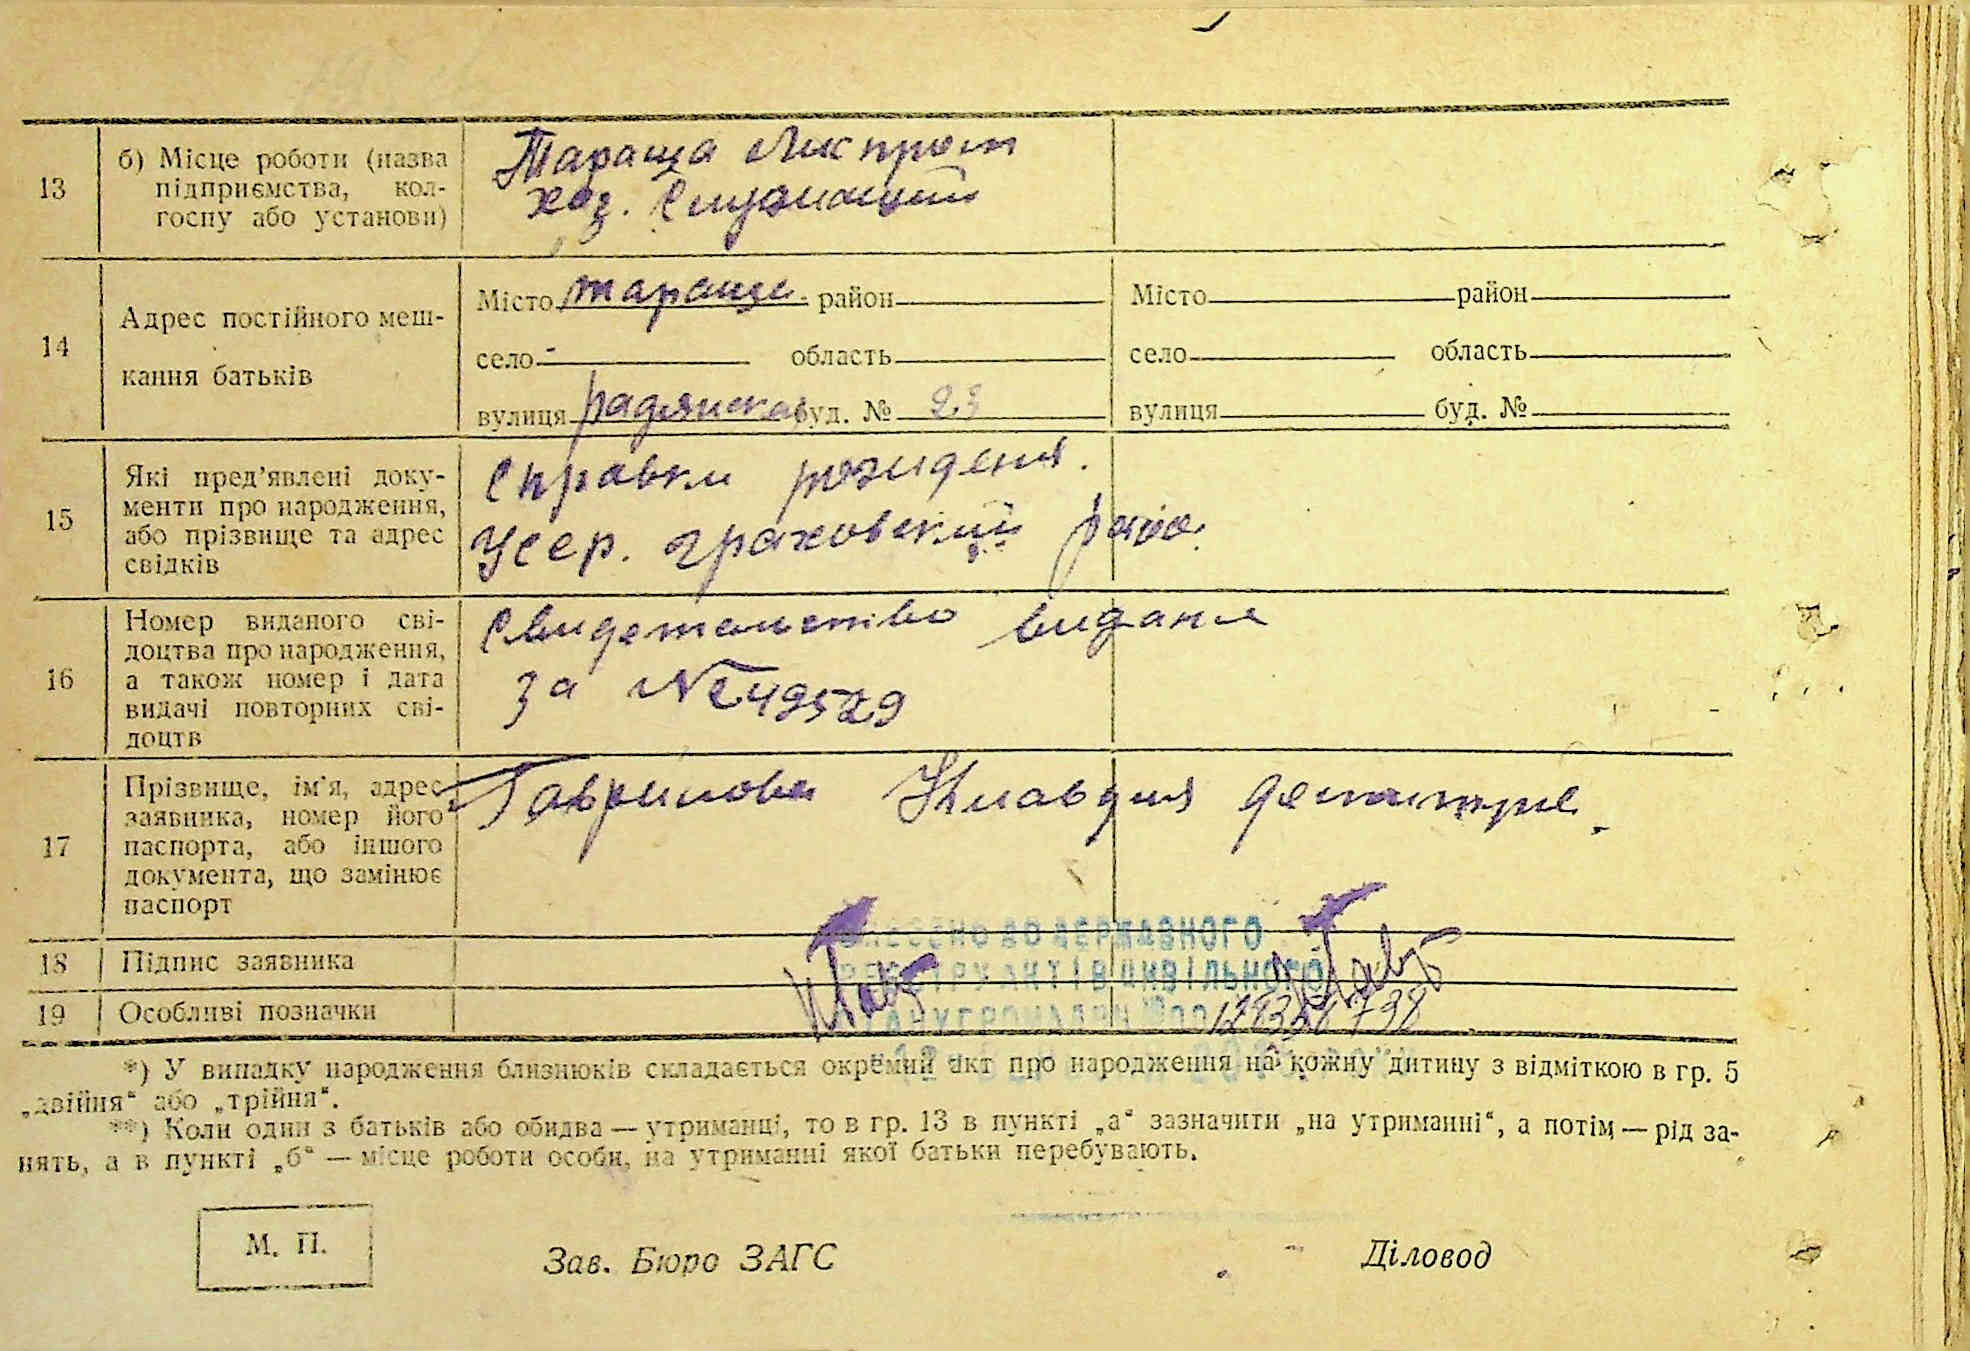 13
б) Місце роботи (назва
підприємства, кол-
госпу або установи)
Тараща
хоз.
14
Адрес постійного меш-
кання батьків
Місто Тараща район Місто район
село область село область
вулиця Радянська буд. № 23 вулиця буд. №
15
Які пред'явлені доку-
менти про народження,
або прізвище та адрес
свідків
Справки
граховский
16
Номер виданого сві-
доцтва про народження,
а також номер і дата
видачі повторних сві-
доцтв
Свидетельство видання
за № 49529
17
Прізвище, ім'я, адрес
заявника, номер його
паспорта, або іншого
документа, що замінює
паспорт
Гаврилова Клавдия
18 Підпис заявника
19 Особливі позначки
ВНЕСЕНО ДО ДЕРЖАВНОГО
РЕЄСТРУ АКТІВ ЦИВІЛЬНОГО
*) У випадку народження близнюків складається окремий акт про народження на кожну дитину з відміткою в гр. 5
„двійня“ або „трійня“.
**) Коли один з батьків або обидва — утриманці, то в гр. 13 в пункті „а“ зазначити „на утриманні“, а потім — рід за-
нять, а в пункті „б“ — місце роботи особи, на утриманні якої батьки перебувають.
М. П.
Зав. Бюро ЗАГС Діловод